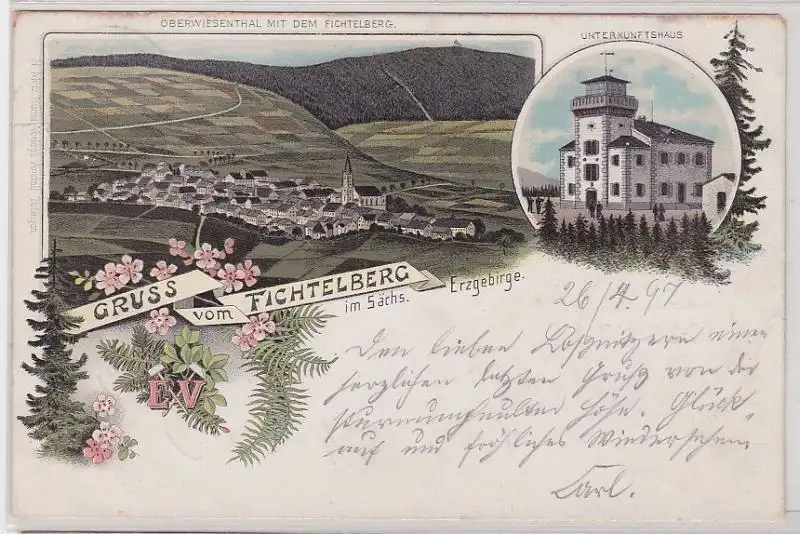 OBERWIESENTHAL MIT DEM FICHTELBERG.
UNTERKUNFTSHAUS
GRUSS vom FICHTELBERG
im Sächs. Erzgebirge.
EV
26/4.97
Den lieben Lößnitzern einen
herzlichen letzten Gruß von der
sturmumheulten Höhe. Glück-
auf und fröhliches Wiedersehen.
Carl.